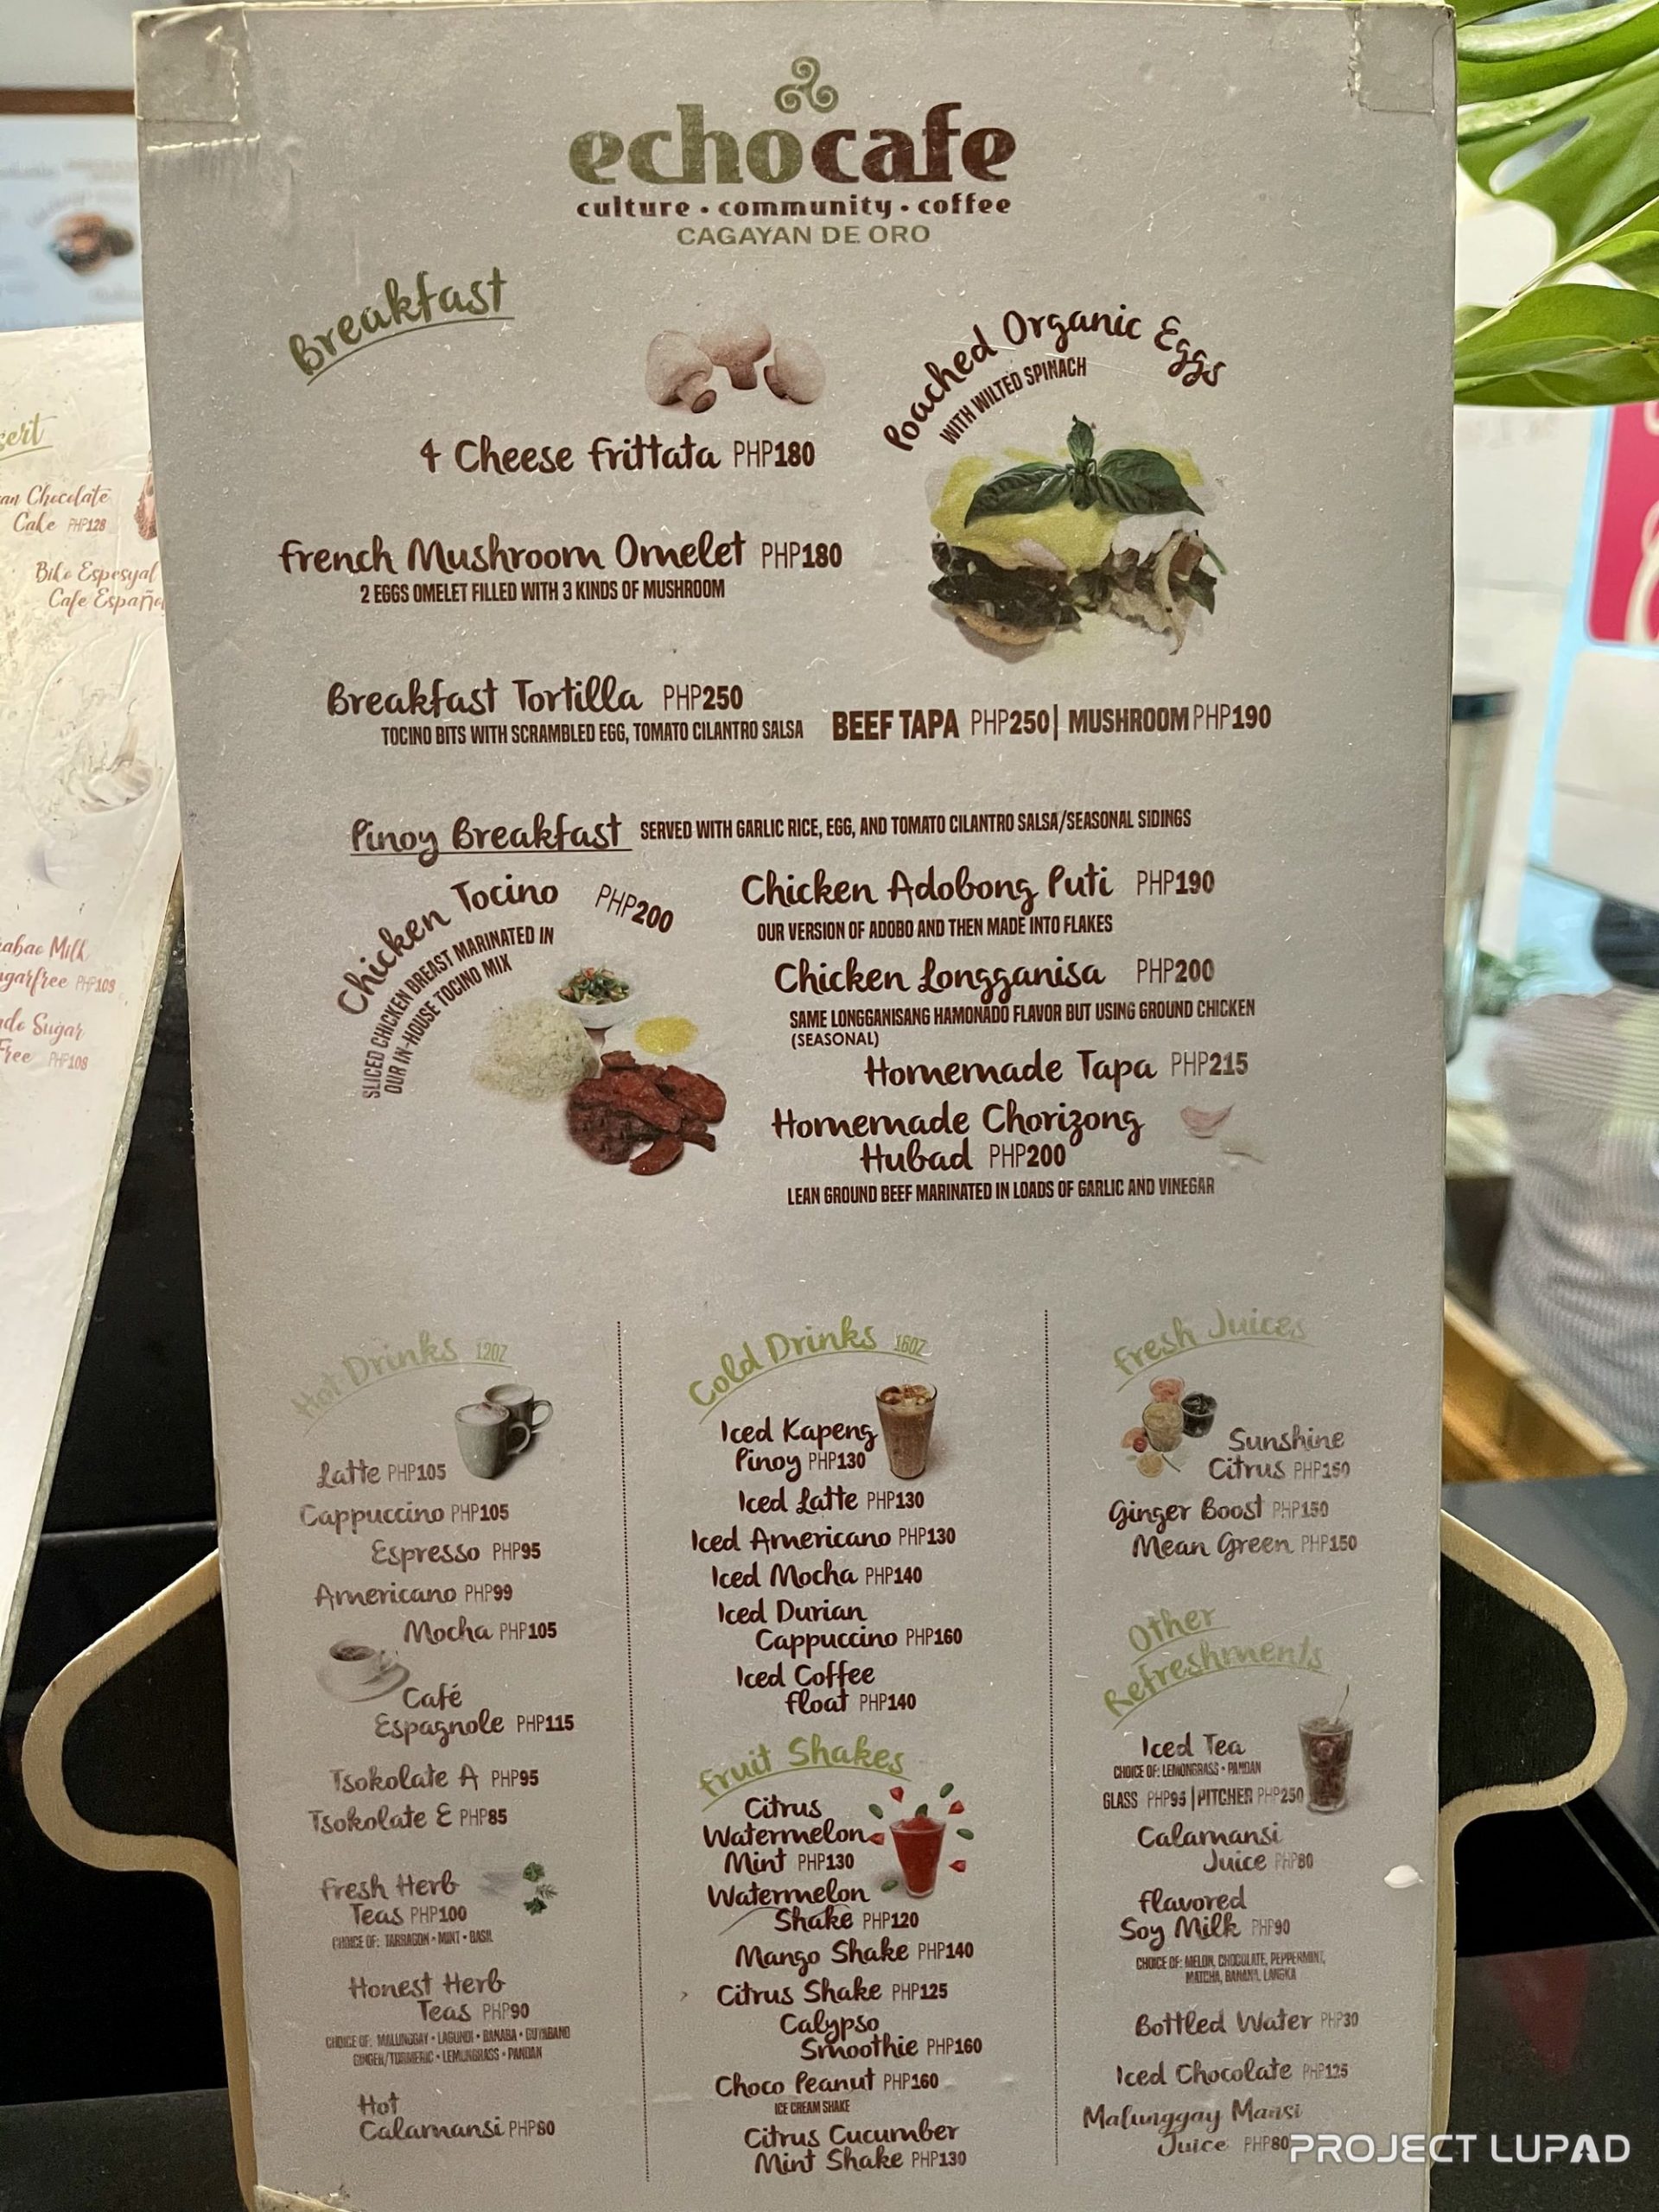 echocafe
culture • community • coffee
CAGAYAN DE ORO
Breakfast
4 Cheese Frittata PHP180
French Mushroom Omelet PHP180
2 EGGS OMELET FILLED WITH 3 KINDS OF MUSHROOM
Poached Organic Eggs
WITH WILTED SPINACH
Breakfast Tortilla PHP250
TOCINO BITS WITH SCRAMBLED EGG, TOMATO CILANTRO SALSA
BEEF TAPA PHP250| MUSHROOM PHP190
Pinoy Breakfast SERVED WITH GARLIC RICE, EGG, AND TOMATO CILANTRO SALSA/SEASONAL SIDINGS
Chicken Tocino PHP200
SLICED CHICKEN BREAST MARINATED IN
OUR IN-HOUSE TOCINO MIX
Chicken Adobong Puti PHP190
OUR VERSION OF ADOBO AND THEN MADE INTO FLAKES
Chicken Longganisa PHP200
SAME LONGGANISANG HAMONADO FLAVOR BUT USING GROUND CHICKEN
(SEASONAL)
Homemade Tapa PHP215
Homemade Chorizong
Hubad PHP200
LEAN GROUND BEEF MARINATED IN LOADS OF GARLIC AND VINEGAR
Hot Drinks 12OZ
Latte PHP105
Cappuccino PHP105
Espresso PHP95
Americano PHP99
Mocha PHP105
Café
Espagnole PHP115
Tsokolate A PHP95
Tsokolate E PHP85
Fresh Herb
Teas PHP100
CHOICE OF: TARRAGON • MINT • BASIL
Honest Herb
Teas PHP90
CHOICE OF: MALUNGGAY • LAGUNDI • BANABA • GUYABANO
GINGER/TURMERIC • LEMONGRASS • PANDAN
Hot
Calamansi PHP80
Cold Drinks 16OZ
Iced Kapeng
Pinoy PHP130
Iced Latte PHP130
Iced Americano PHP130
Iced Mocha PHP140
Iced Durian
Cappuccino PHP160
Iced Coffee
Float PHP140
Fruit Shakes
Citrus
Watermelon
Mint PHP130
Watermelon
Shake PHP120
Mango Shake PHP140
Citrus Shake PHP125
Calypso
Smoothie PHP160
Choco Peanut PHP160
ICE CREAM SHAKE
Citrus Cucumber
Mint Shake PHP130
Fresh Juices
Sunshine
Citrus PHP150
Ginger Boost PHP150
Mean Green PHP150
Other
Refreshments
Iced Tea
CHOICE OF: LEMONGRASS • PANDAN
GLASS PHP95 | PITCHER PHP250
Calamansi
Juice PHP80
Flavored
Soy Milk PHP90
CHOICE OF: MELON, CHOCOLATE, PEPPERMINT,
MATCHA, BANANA, LANGKA
Bottled Water PHP30
Iced Chocolate PHP125
Malunggay Mansi
Juice PHP80
Chocolate
Cake PHP128
Biko Espesyal
Milk
PHP108
Sugar
Free PHP108
PROJECT LUPAD